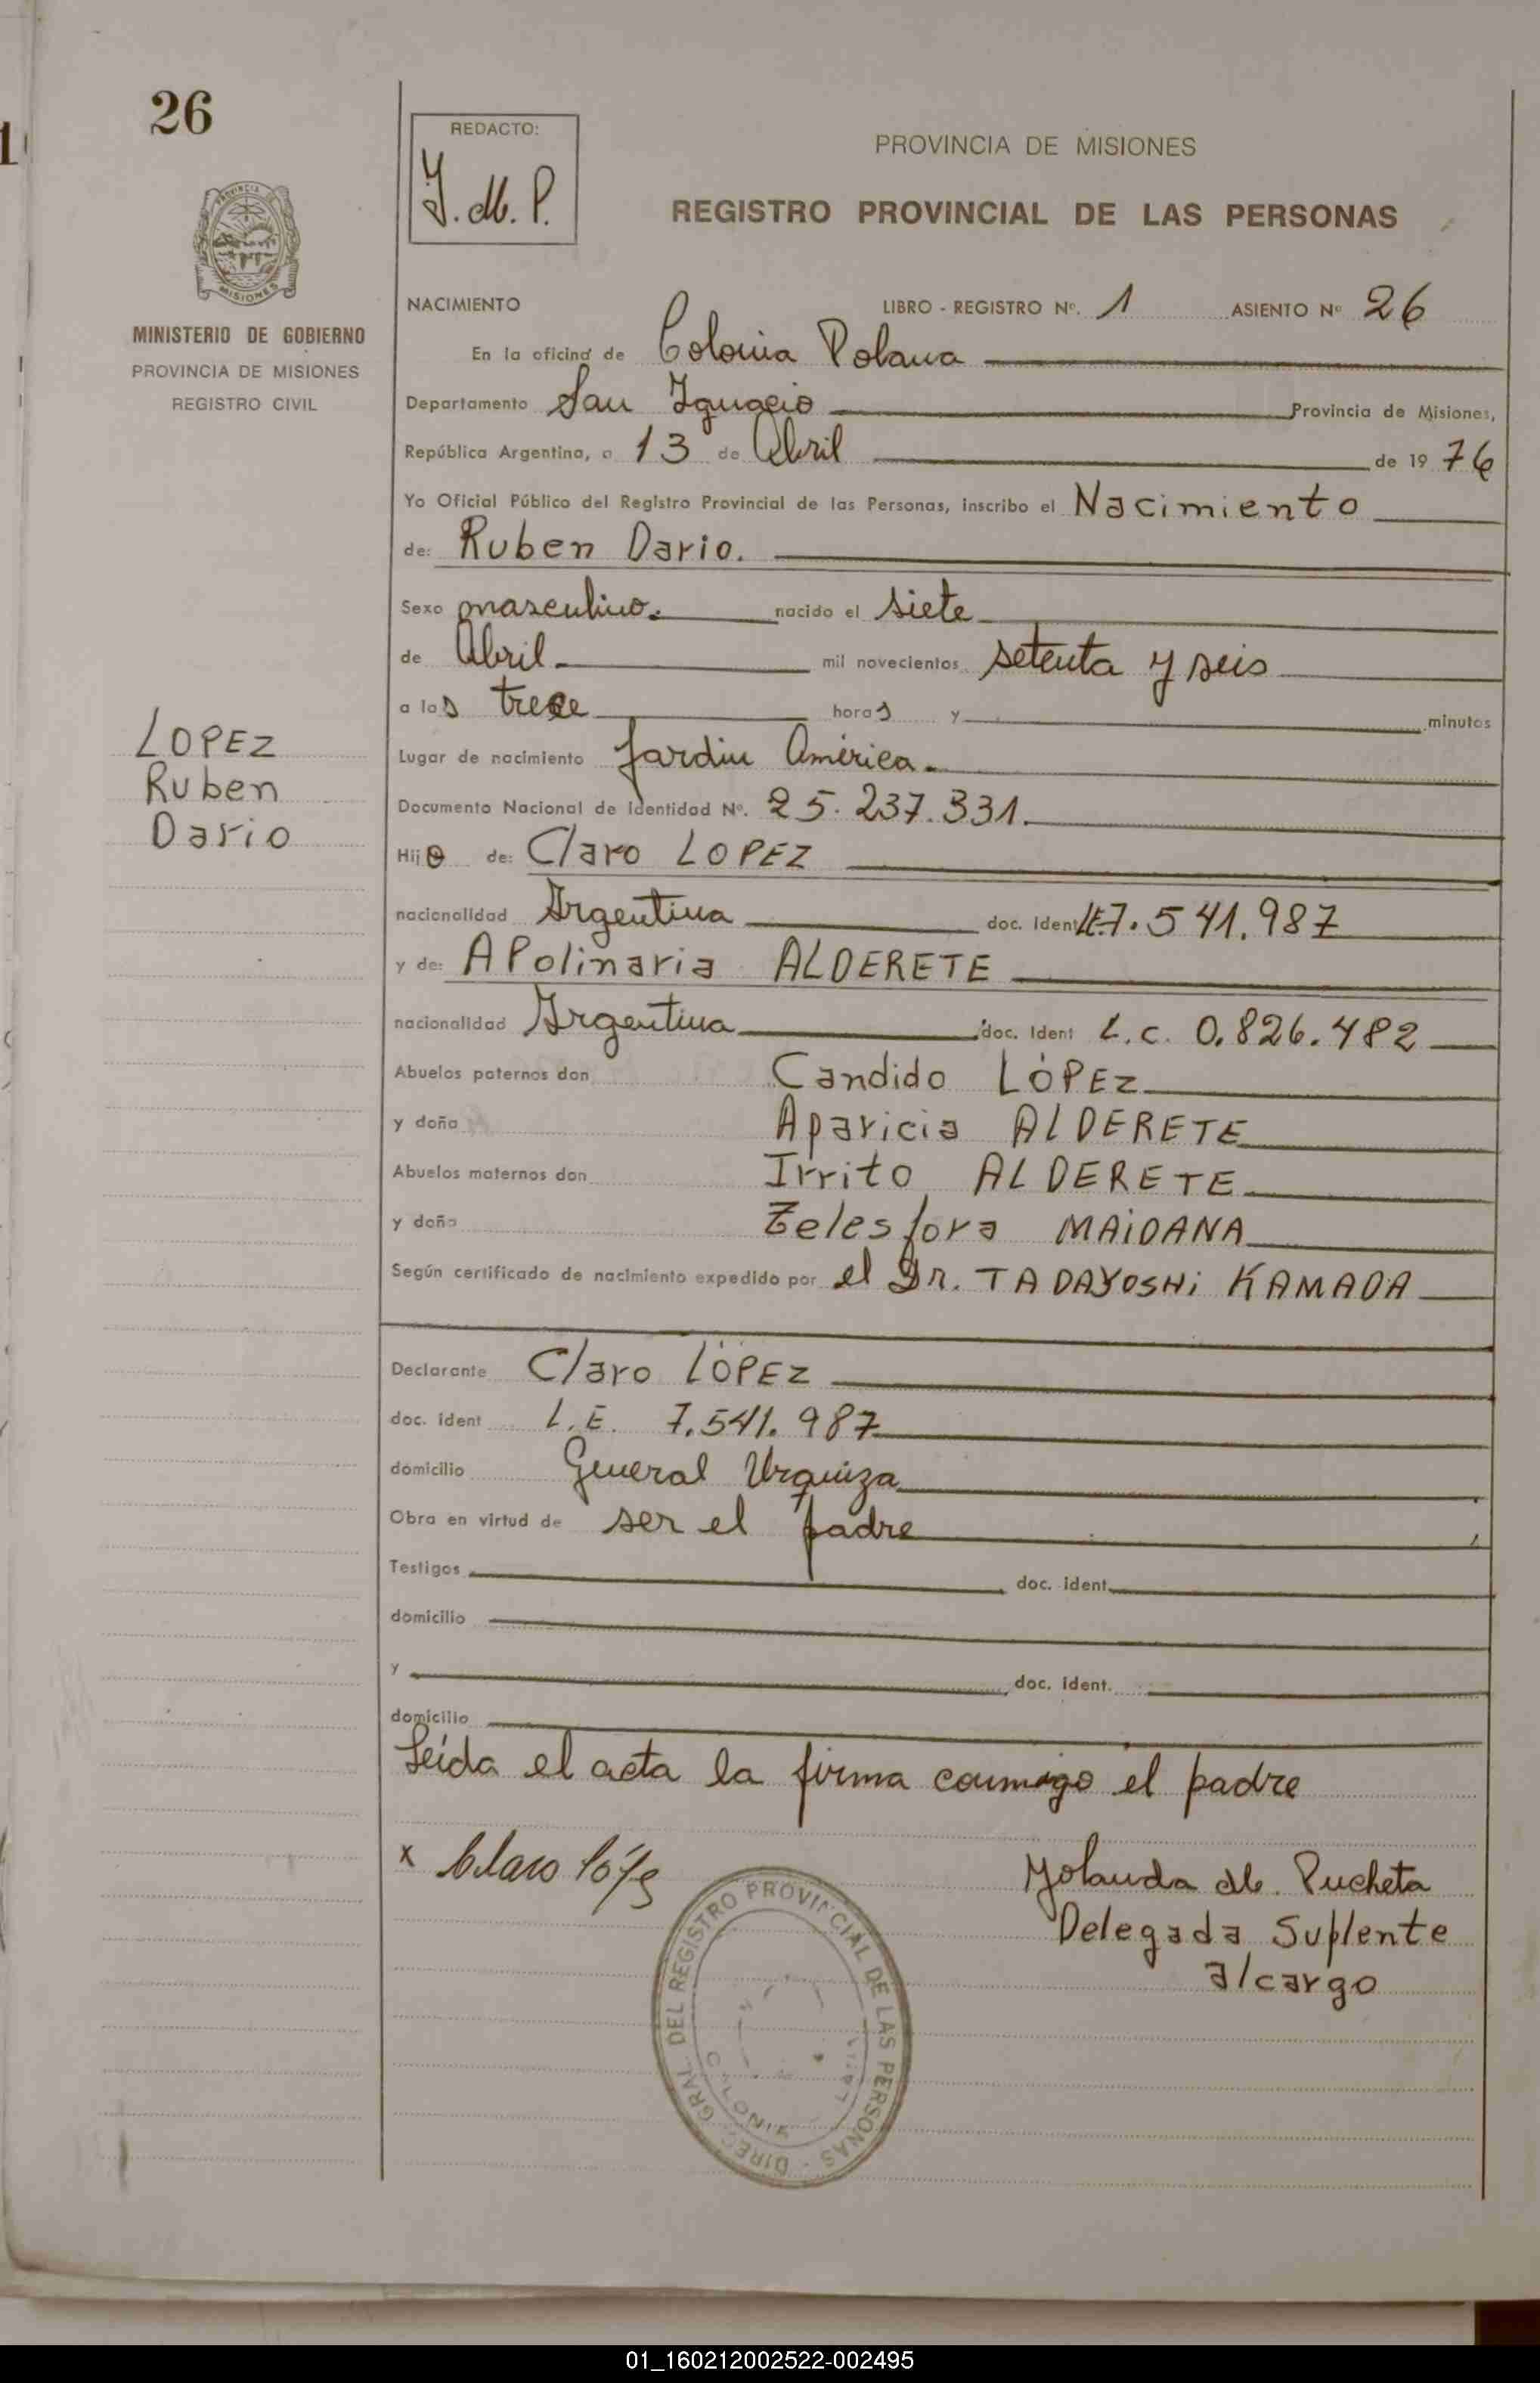 26
PROVINCIA
MISIONES
MINISTERIO DE GOBIERNO
PROVINCIA DE MISIONES
REGISTRO CIVIL
LOPEZ
Ruben
Dario
REDACTO:
Y.M.P.
PROVINCIA DE MISIONES
REGISTRO PROVINCIAL DE LAS PERSONAS
NACIMIENTO LIBRO - REGISTRO Nº. 1 ASIENTO Nº 26
En la oficina de Colonia Polana
Departamento San Ignacio Provincia de Misiones,
República Argentina, a 13 de Abril de 19 76
Yo Oficial Público del Registro Provincial de las Personas, inscribo el Nacimiento
de: Ruben Dario.
Sexo masculino. nacido el siete
de Abril mil novecientos setenta y seis
a las trece horas y minutos
Lugar de nacimiento Jardin América.
Documento Nacional de Identidad Nº. 25.237.331.
Hijo de: Claro LOPEZ
nacionalidad Argentina doc. Ident L.E.7.541.987
y de: APolinaria ALDERETE
nacionalidad Argentina doc. Ident L.C. 0.826.482
Abuelos paternos don Candido LÓPEZ
y doña Aparicia ALDERETE
Abuelos maternos don Irrito ALDERETE
y doña Telesfora MAiDANA
Según certificado de nacimiento expedido por el Dr. TADAYOSHi KAMADA
Declarante Claro LÓPEZ
doc. ident L.E. 7.541.987
domicilio General Urquiza
Obra en virtud de ser el padre
Testigos doc. ident.
domicilio
y doc. ident.
domicilio
Leída el acta la firma conmigo el padre
x Claro López
Yolanda M. Pucheta
Delegada Suplente
al cargo
DIREC. GRAL. DEL REGISTRO PROVINCIAL DE LAS PERSONAS
COLONIA
01_160212002522-002495